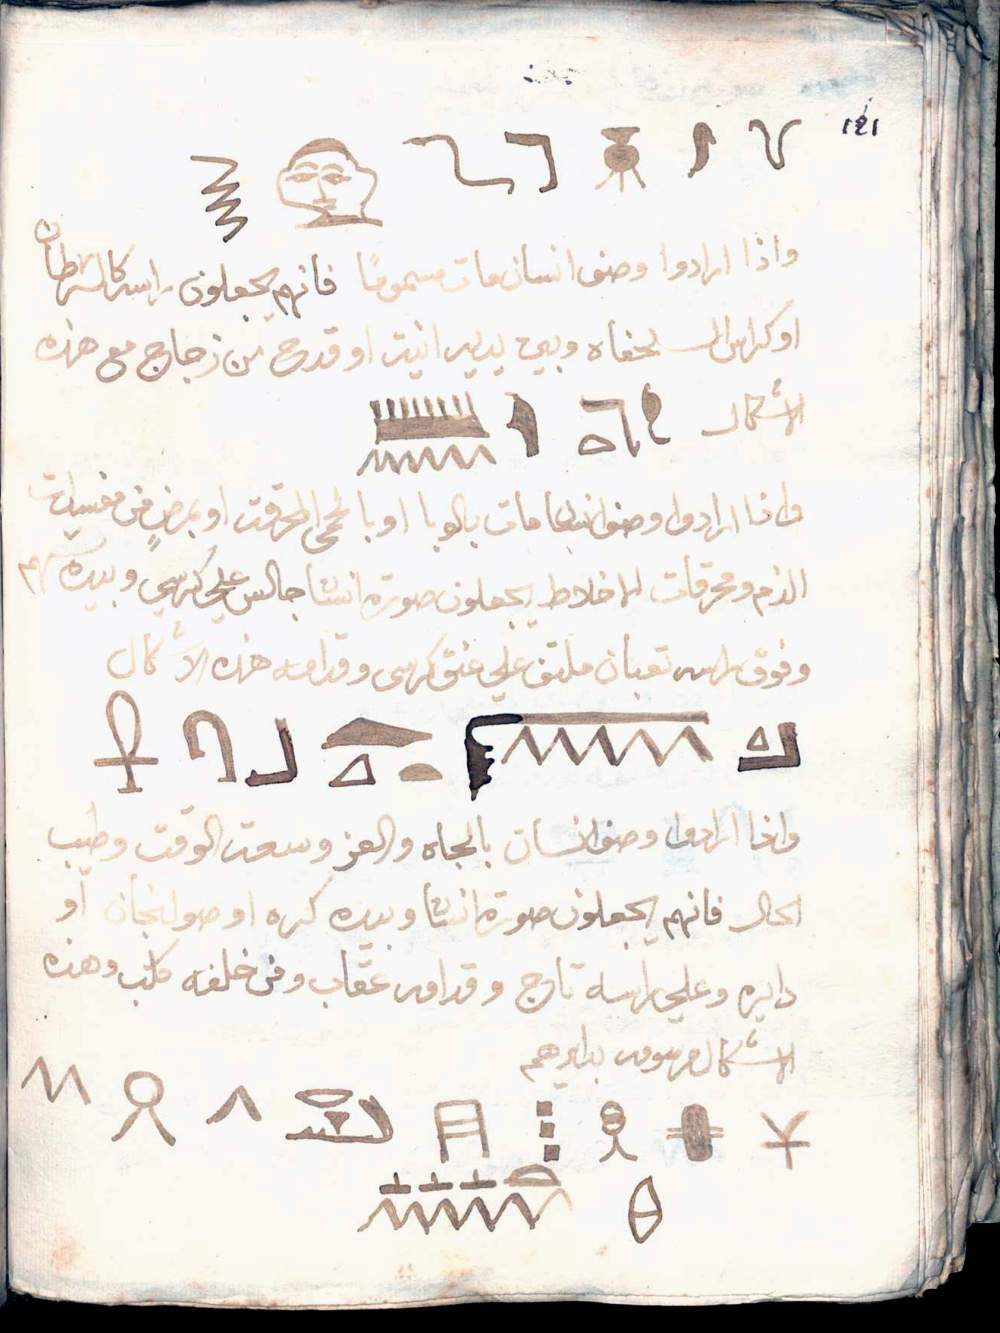 ١٤١
واذا ارادوا وصف انسان مات مسموما فانهم يجعلون راسه كالسرطان
او كراس السلحفاه وبين يديه انيت او قدح من زجاج مع هذه
الاشكال
واذا ارادوا وصف انسانا مات بالوبا او بالحمى المحرقت او بمرض من مفسدات
الدم ومحرقات الاخلاط يجعلون صورة انسانا جالس علي كرسي وبيده سهم
وفوق راسه تعبان ملتف علي عنق كرسي وقدامه هذه الاشكال
واذا ارادوا وصف انسان بالجاه والعز وسعت الوقت وطيب
الحال فانهم يجعلون صورة انسانا وبيده كره او صولجان او
دايره وعلي راسه تاج وقدامه عقاب ومن خلفه كلب وهذه
الاشكال مرسومه بدايرهم